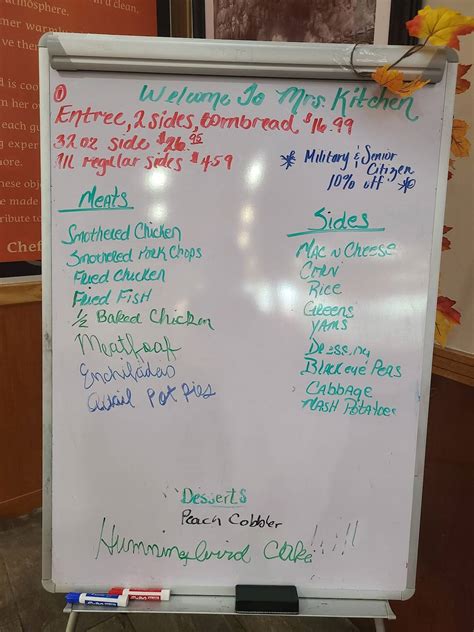 Welcome To Mrs. Kitchen
① Entree, 2 sides, cornbread $16.99
32 oz side $26.95
All regular sides $4.59
* Military & Senior
Citizen
10% off *
Meats
Smothered Chicken
Smothered Pork Chops
Fried Chicken
Fried Fish
1/2 Baked Chicken
Meatloaf
Enchiladas
Quail Pot pies
Sides
Mac n Cheese
Corn
Rice
Greens
Yams
Dressing
Black eye Peas
Cabbage
Mash Potatoes
Desserts
Peach Cobbler
Hummingbird Cake!!!!!
Chef